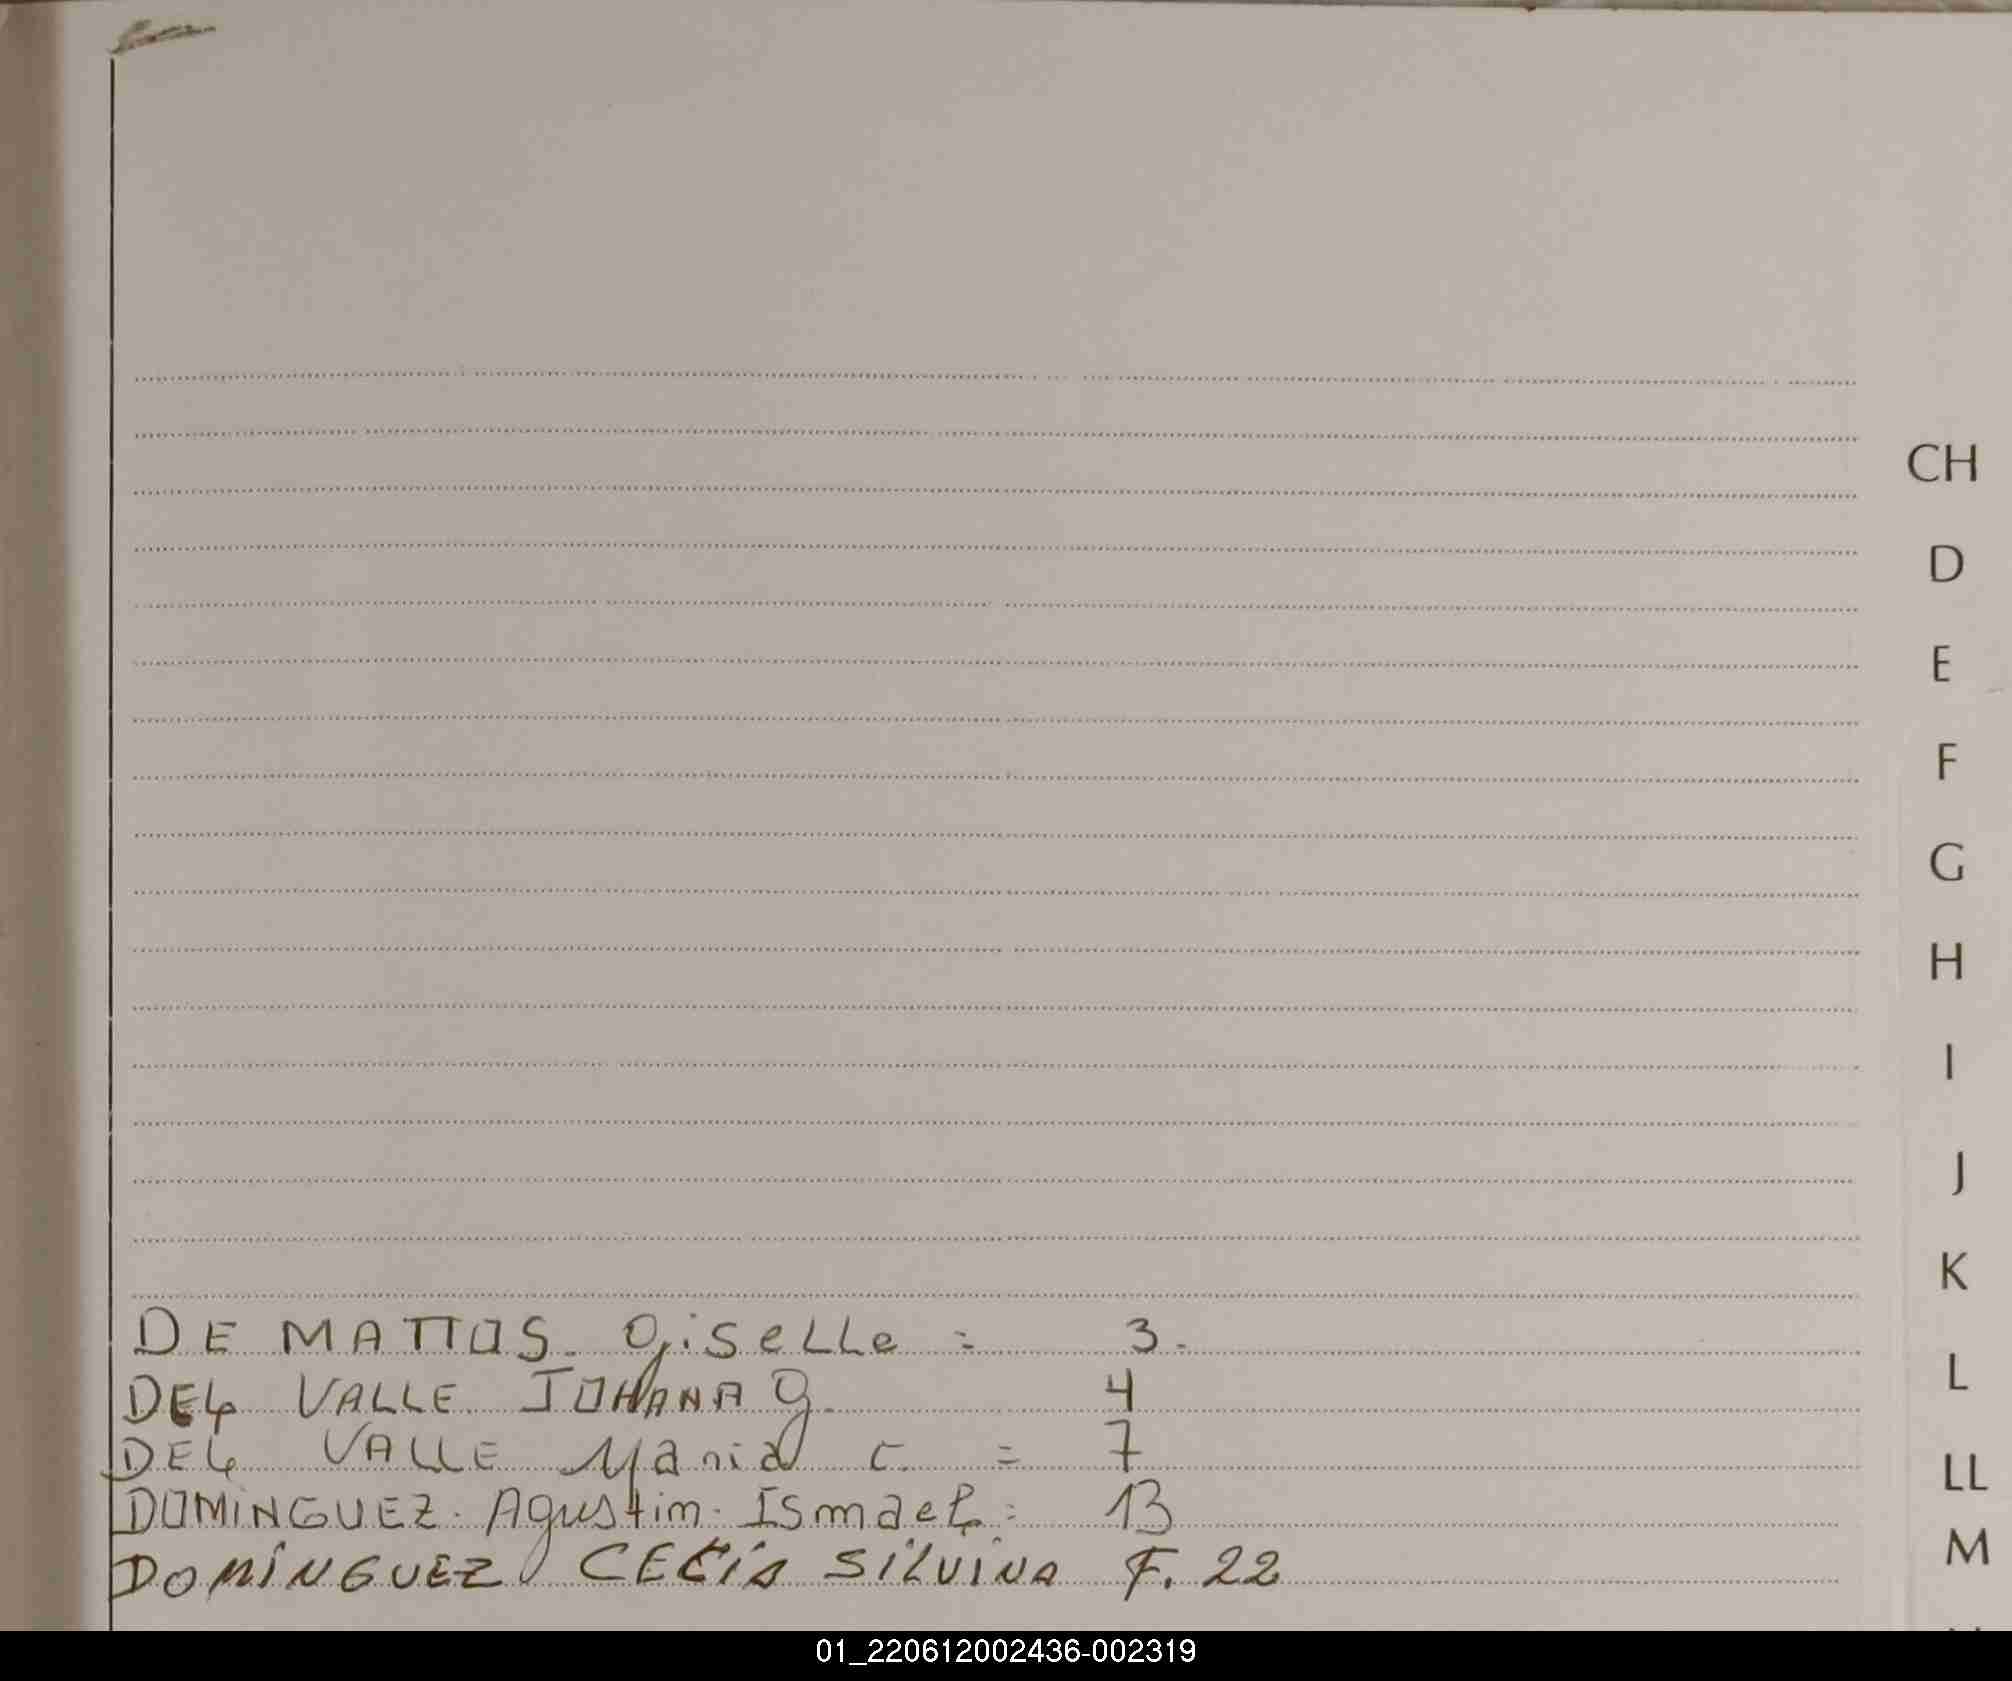 CH
D
E
F
G
H
I
J
K
L
LL
M
DE MATTOS. Giselle = 3.
DEL VALLE JOHANA G. 4
DEL VALLE Maria C. = 7
DOMINGUEZ. Agustin. Ismael = 13
DOMINGUEZ CELIA SILVINA F. 22
01_220612002436-002319